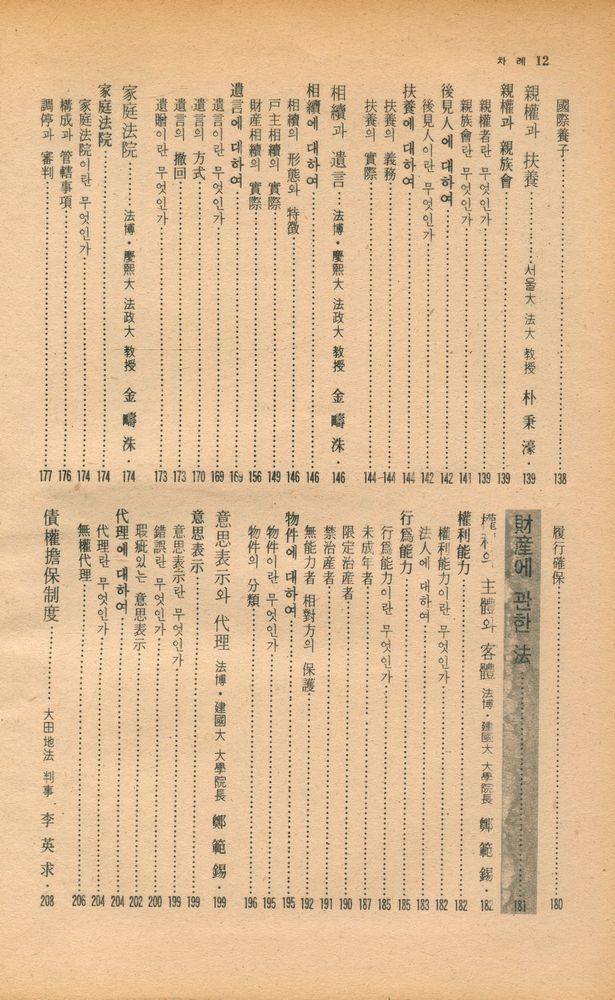 차례 12
國際養子 138
親權과 扶養 서울大 法大 敎授 朴秉濠· 139
親權과 親族會 139
親權者란 무엇인가 139
親族會란 무엇인가 141
後見人에 대하여 142
後見人이란 무엇인가 142
扶養에 대하여 144
扶養의 義務 144
扶養의 實際 144
相續과 遺言 法博·慶熙大 法政大 敎授 金疇洙· 146
相續에 대하여 146
相續의 形態와 特徵 146
戶主相續의 實際 149
財産相續의 實際 156
遺言에 대하여 169
遺言이란 무엇인가 169
遺言의 方式 170
遺言의 撤回 173
遺贈이란 무엇인가 173
家庭法院 法博·慶熙大 法政大 敎授 金疇洙· 174
家庭法院 174
家庭法院이란 무엇인가 174
構成과 管轄事項 176
調停과 審判 177
履行確保 180
財産에 관한 法 181
權利의 主體와 客體 法博·建國大 大學院長 鄭範錫· 182
權利能力 182
權利能力이란 무엇인가 182
法人에 대하여 183
行爲能力 185
行爲能力이란 무엇인가 185
未成年者 187
限定治産者 190
禁治産者 191
無能力者 相對方의 保護 192
物件에 대하여 195
物件이란 무엇인가 195
物件의 分類 196
意思表示와 代理 法博·建國大 大學院長 鄭範錫· 199
意思表示 199
意思表示란 무엇인가 199
錯誤란 무엇인가 200
瑕疵있는 意思表示 202
代理에 대하여 204
代理란 무엇인가 204
無權代理 206
債權擔保制度 大田地法 判事 李英求· 208